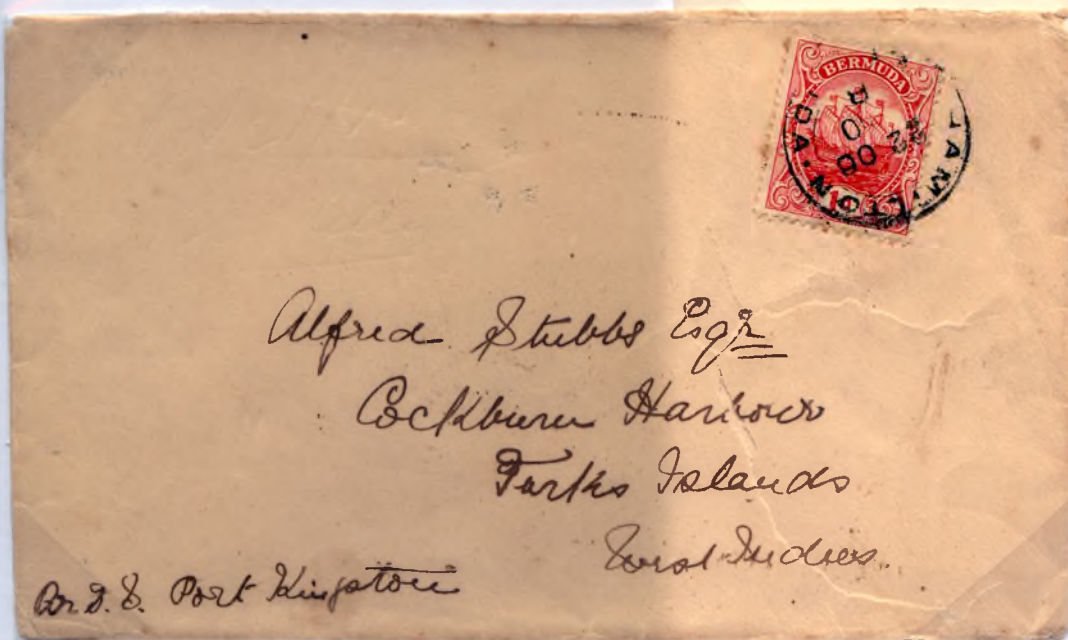 BERMUDA
HAMILTON
Alfred Stubbs Esqr
Cockburn Harbour
Turks Islands
West Indies.
Per S. S. Port Kingston